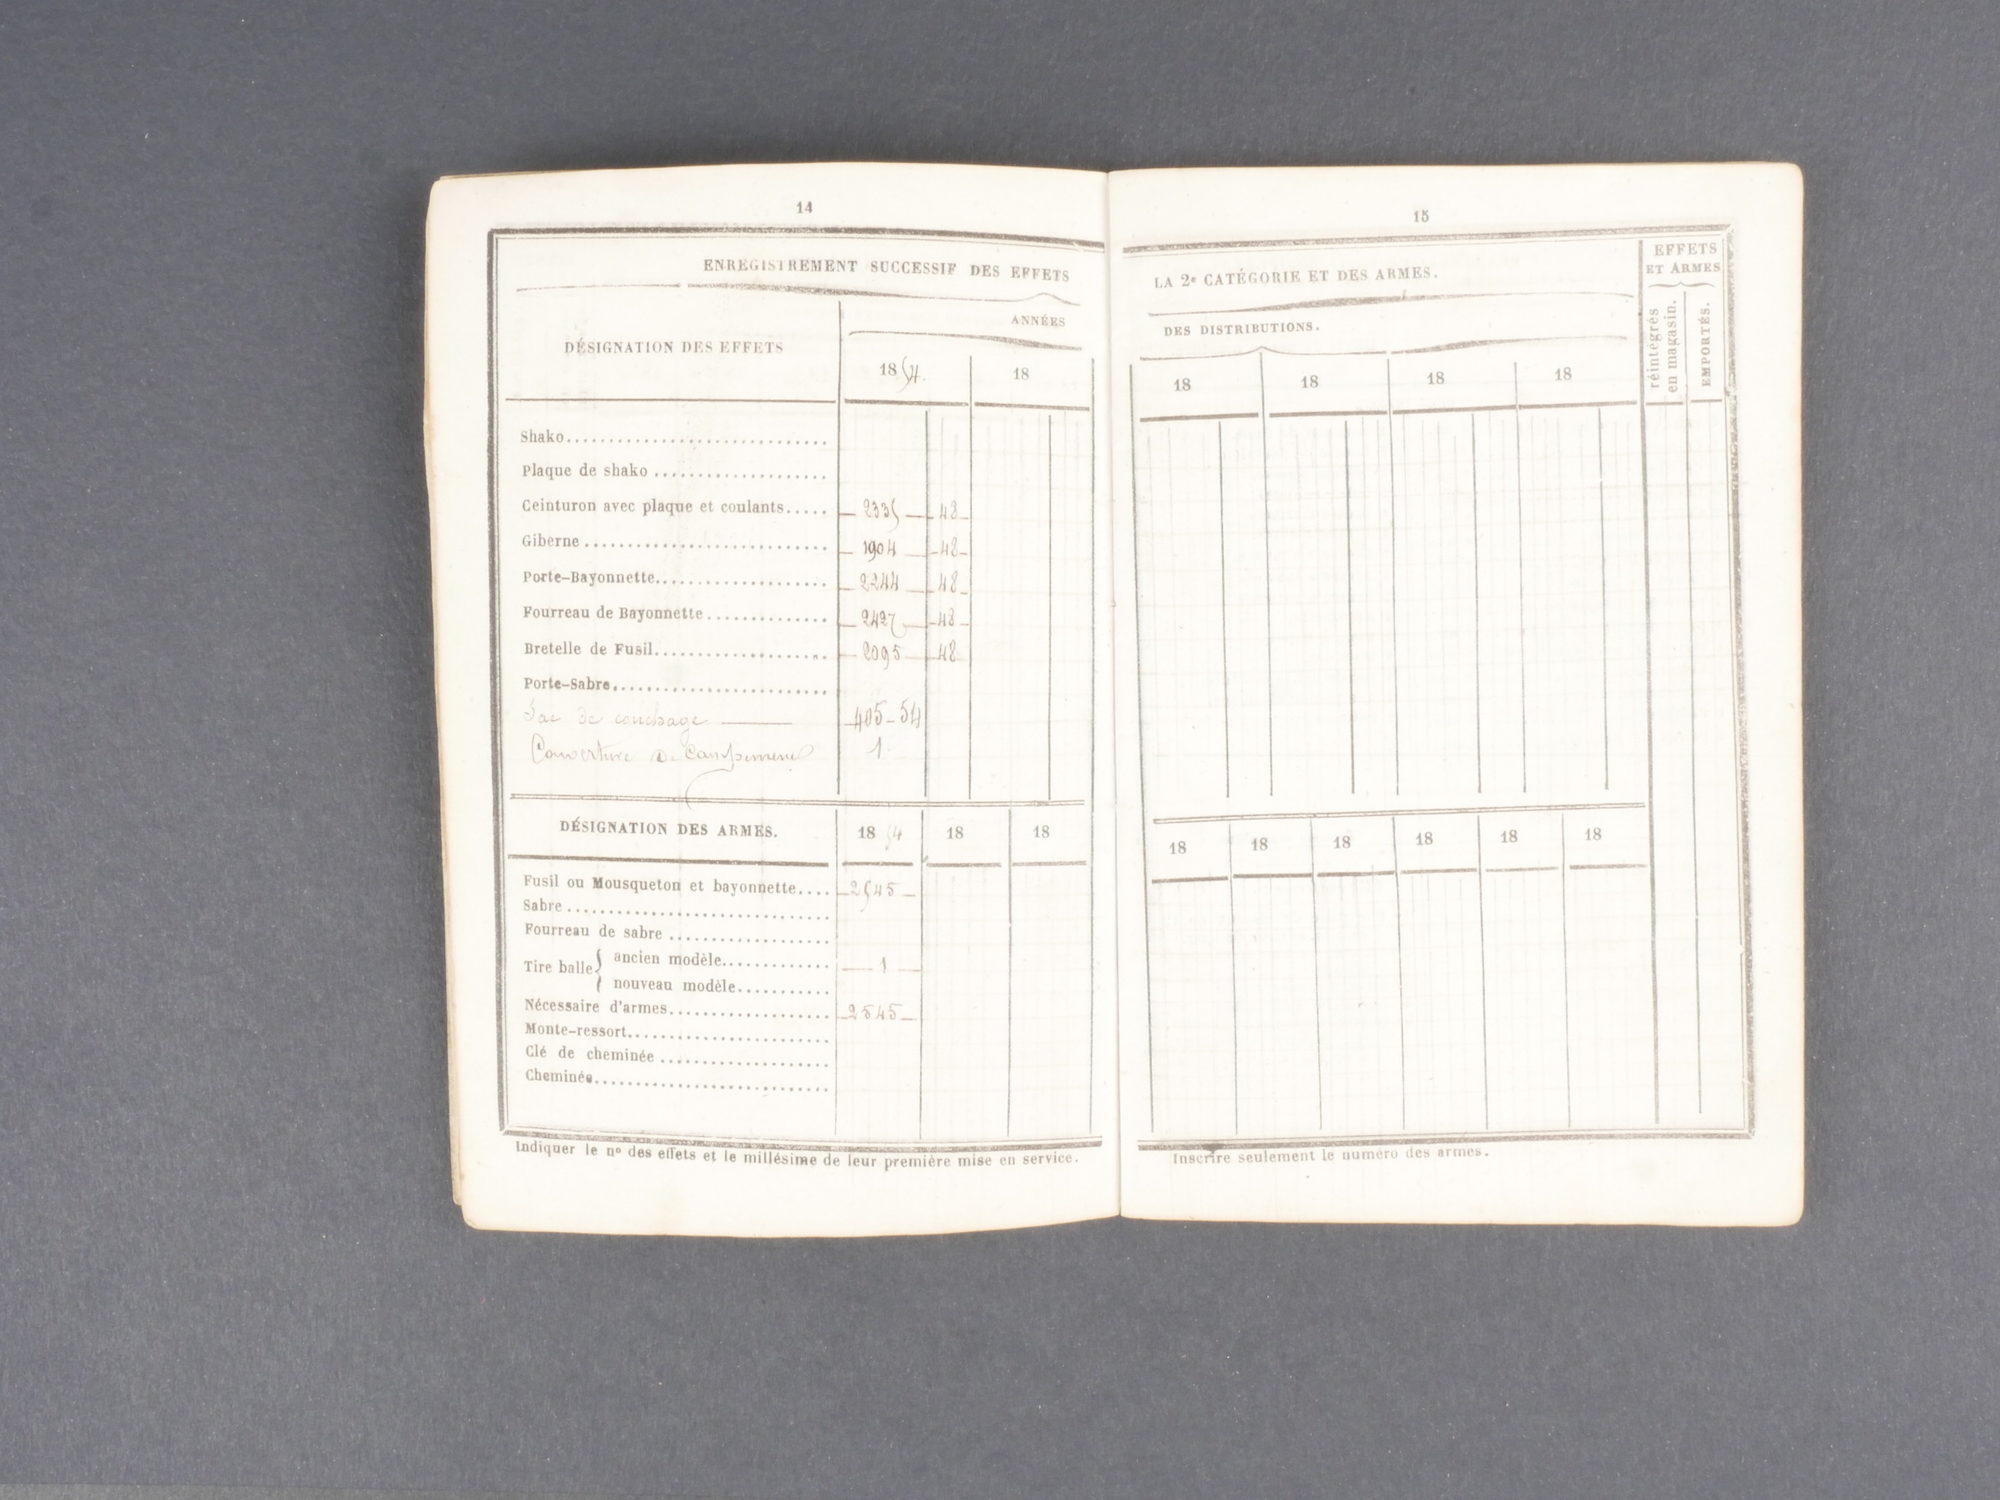 14
ENREGISTREMENT SUCCESSIF DES EFFETS
DÉSIGNATION DES EFFETS
ANNÉES
1854. 18
Shako
Plaque de shako
Ceinturon avec plaque et coulants 2335 48
Giberne 1904 48
Porte-Bayonnette 2244 48
Fourreau de Bayonnette 2427 48
Bretelle de Fusil 2095 48
Porte-Sabre
Sac de couchage 405-54
Couverture de Campement 1
DÉSIGNATION DES ARMES. 1854 18 18
Fusil ou Mousqueton et bayonnette 2545
Sabre
Fourreau de sabre
Tire balle { ancien modèle 1
nouveau modèle
Nécessaire d'armes 2545
Monte-ressort
Clé de cheminée
Cheminée
Indiquer le nº des effets et le millésime de leur première mise en service.
15
LA 2e CATÉGORIE ET DES ARMES.
DES DISTRIBUTIONS.
18 18 18 18
EFFETS
ET ARMES
réintégrés
en magasin.
EMPORTÉS.
18 18 18 18 18 18
Inscrire seulement le numéro des armes.